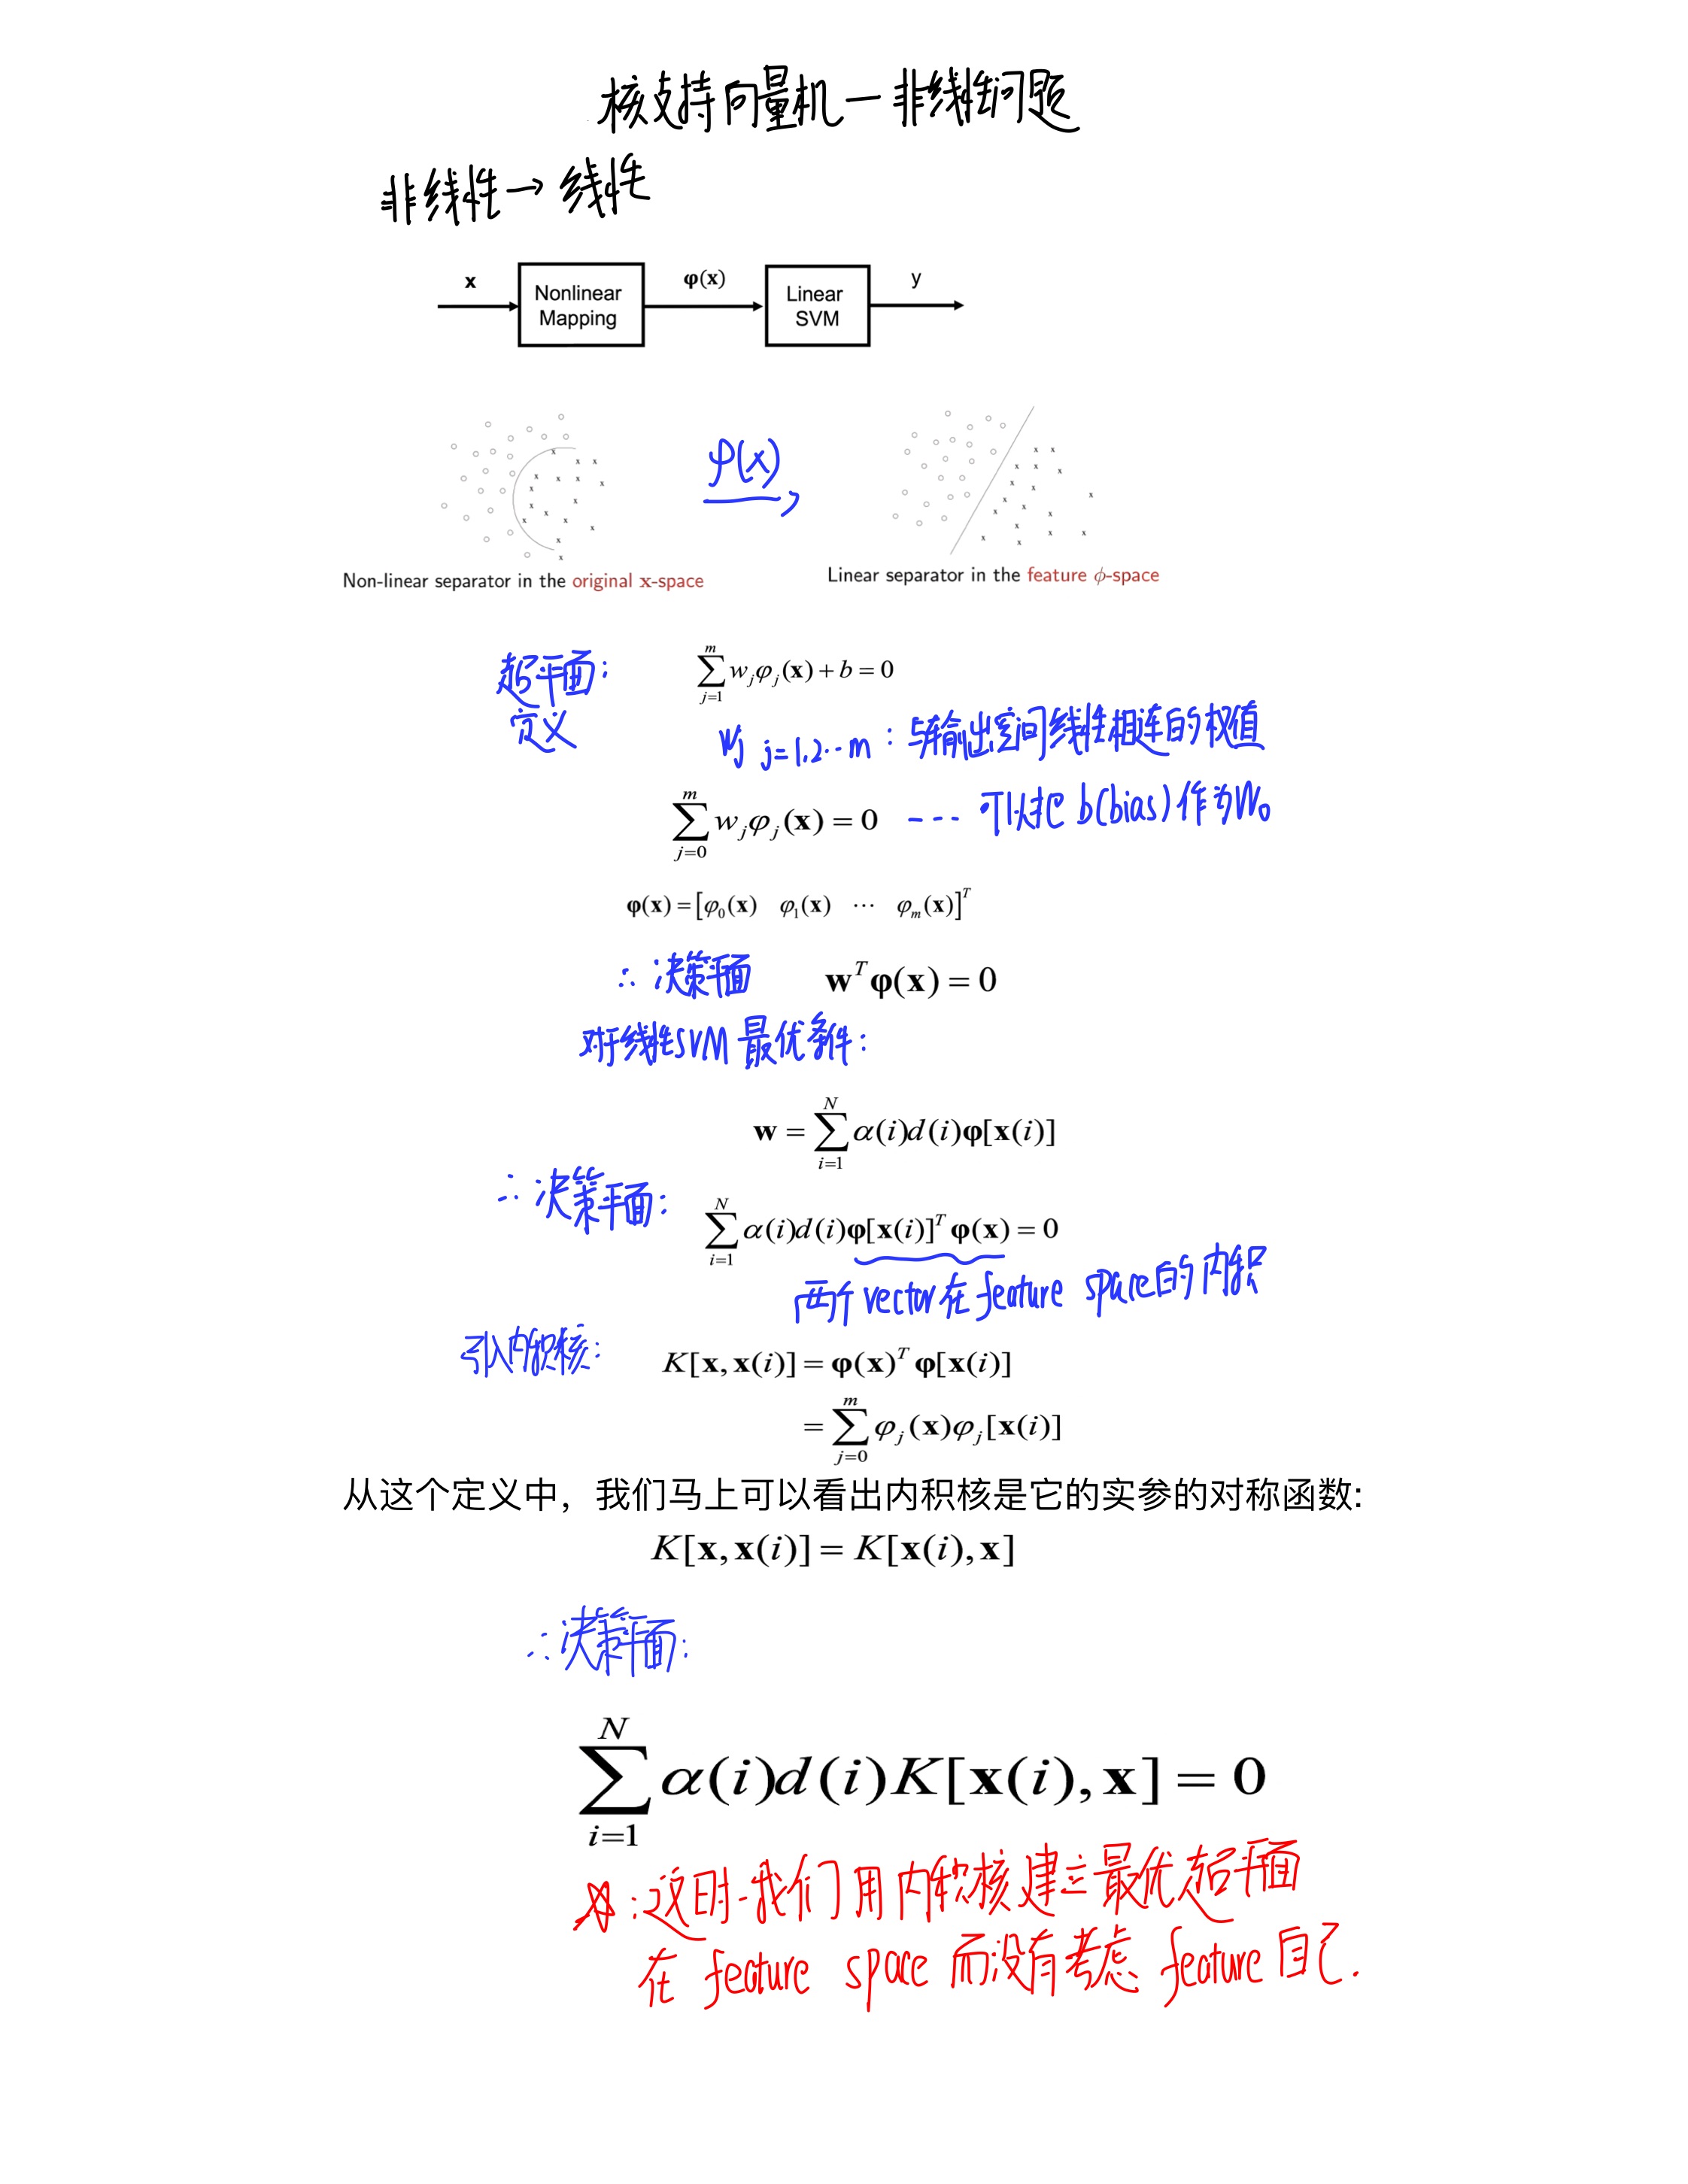 核支持向量机—非线性问题
非线性→线性
x
Nonlinear
Mapping
φ(x)
Linear
SVM
y
φ(x)
Non-linear separator in the original x-space
Linear separator in the feature ϕ-space
超平面:
定义
∑_{j=1}^{m} w_j φ_j(x) + b = 0
W_j j=1,2...m : 与输出空间线性相连的权值
∑_{j=0}^{m} w_j φ_j(x) = 0 --- 可以把b(bias)作为W₀
φ(x) = [φ_0(x) φ_1(x) ⋯ φ_m(x)]^T
∴ 决策平面 w^T φ(x) = 0
对于线性SVM最优条件:
w = ∑_{i=1}^{N} α(i)d(i)φ[x(i)]
∴ 决策平面: ∑_{i=1}^{N} α(i)d(i)φ[x(i)]^T φ(x) = 0
两个vector在feature space的内积
引入内积核: K[x, x(i)] = φ(x)^T φ[x(i)]
= ∑_{j=0}^{m} φ_j(x)φ_j[x(i)]
从这个定义中，我们马上可以看出内积核是它的实参的对称函数:
K[x, x(i)] = K[x(i), x]
∴决策平面:
∑_{i=1}^{N} α(i)d(i)K[x(i), x] = 0
☆:这时-我们用内积核建立最优超平面
在 feature space 而没有考虑 feature 自己.